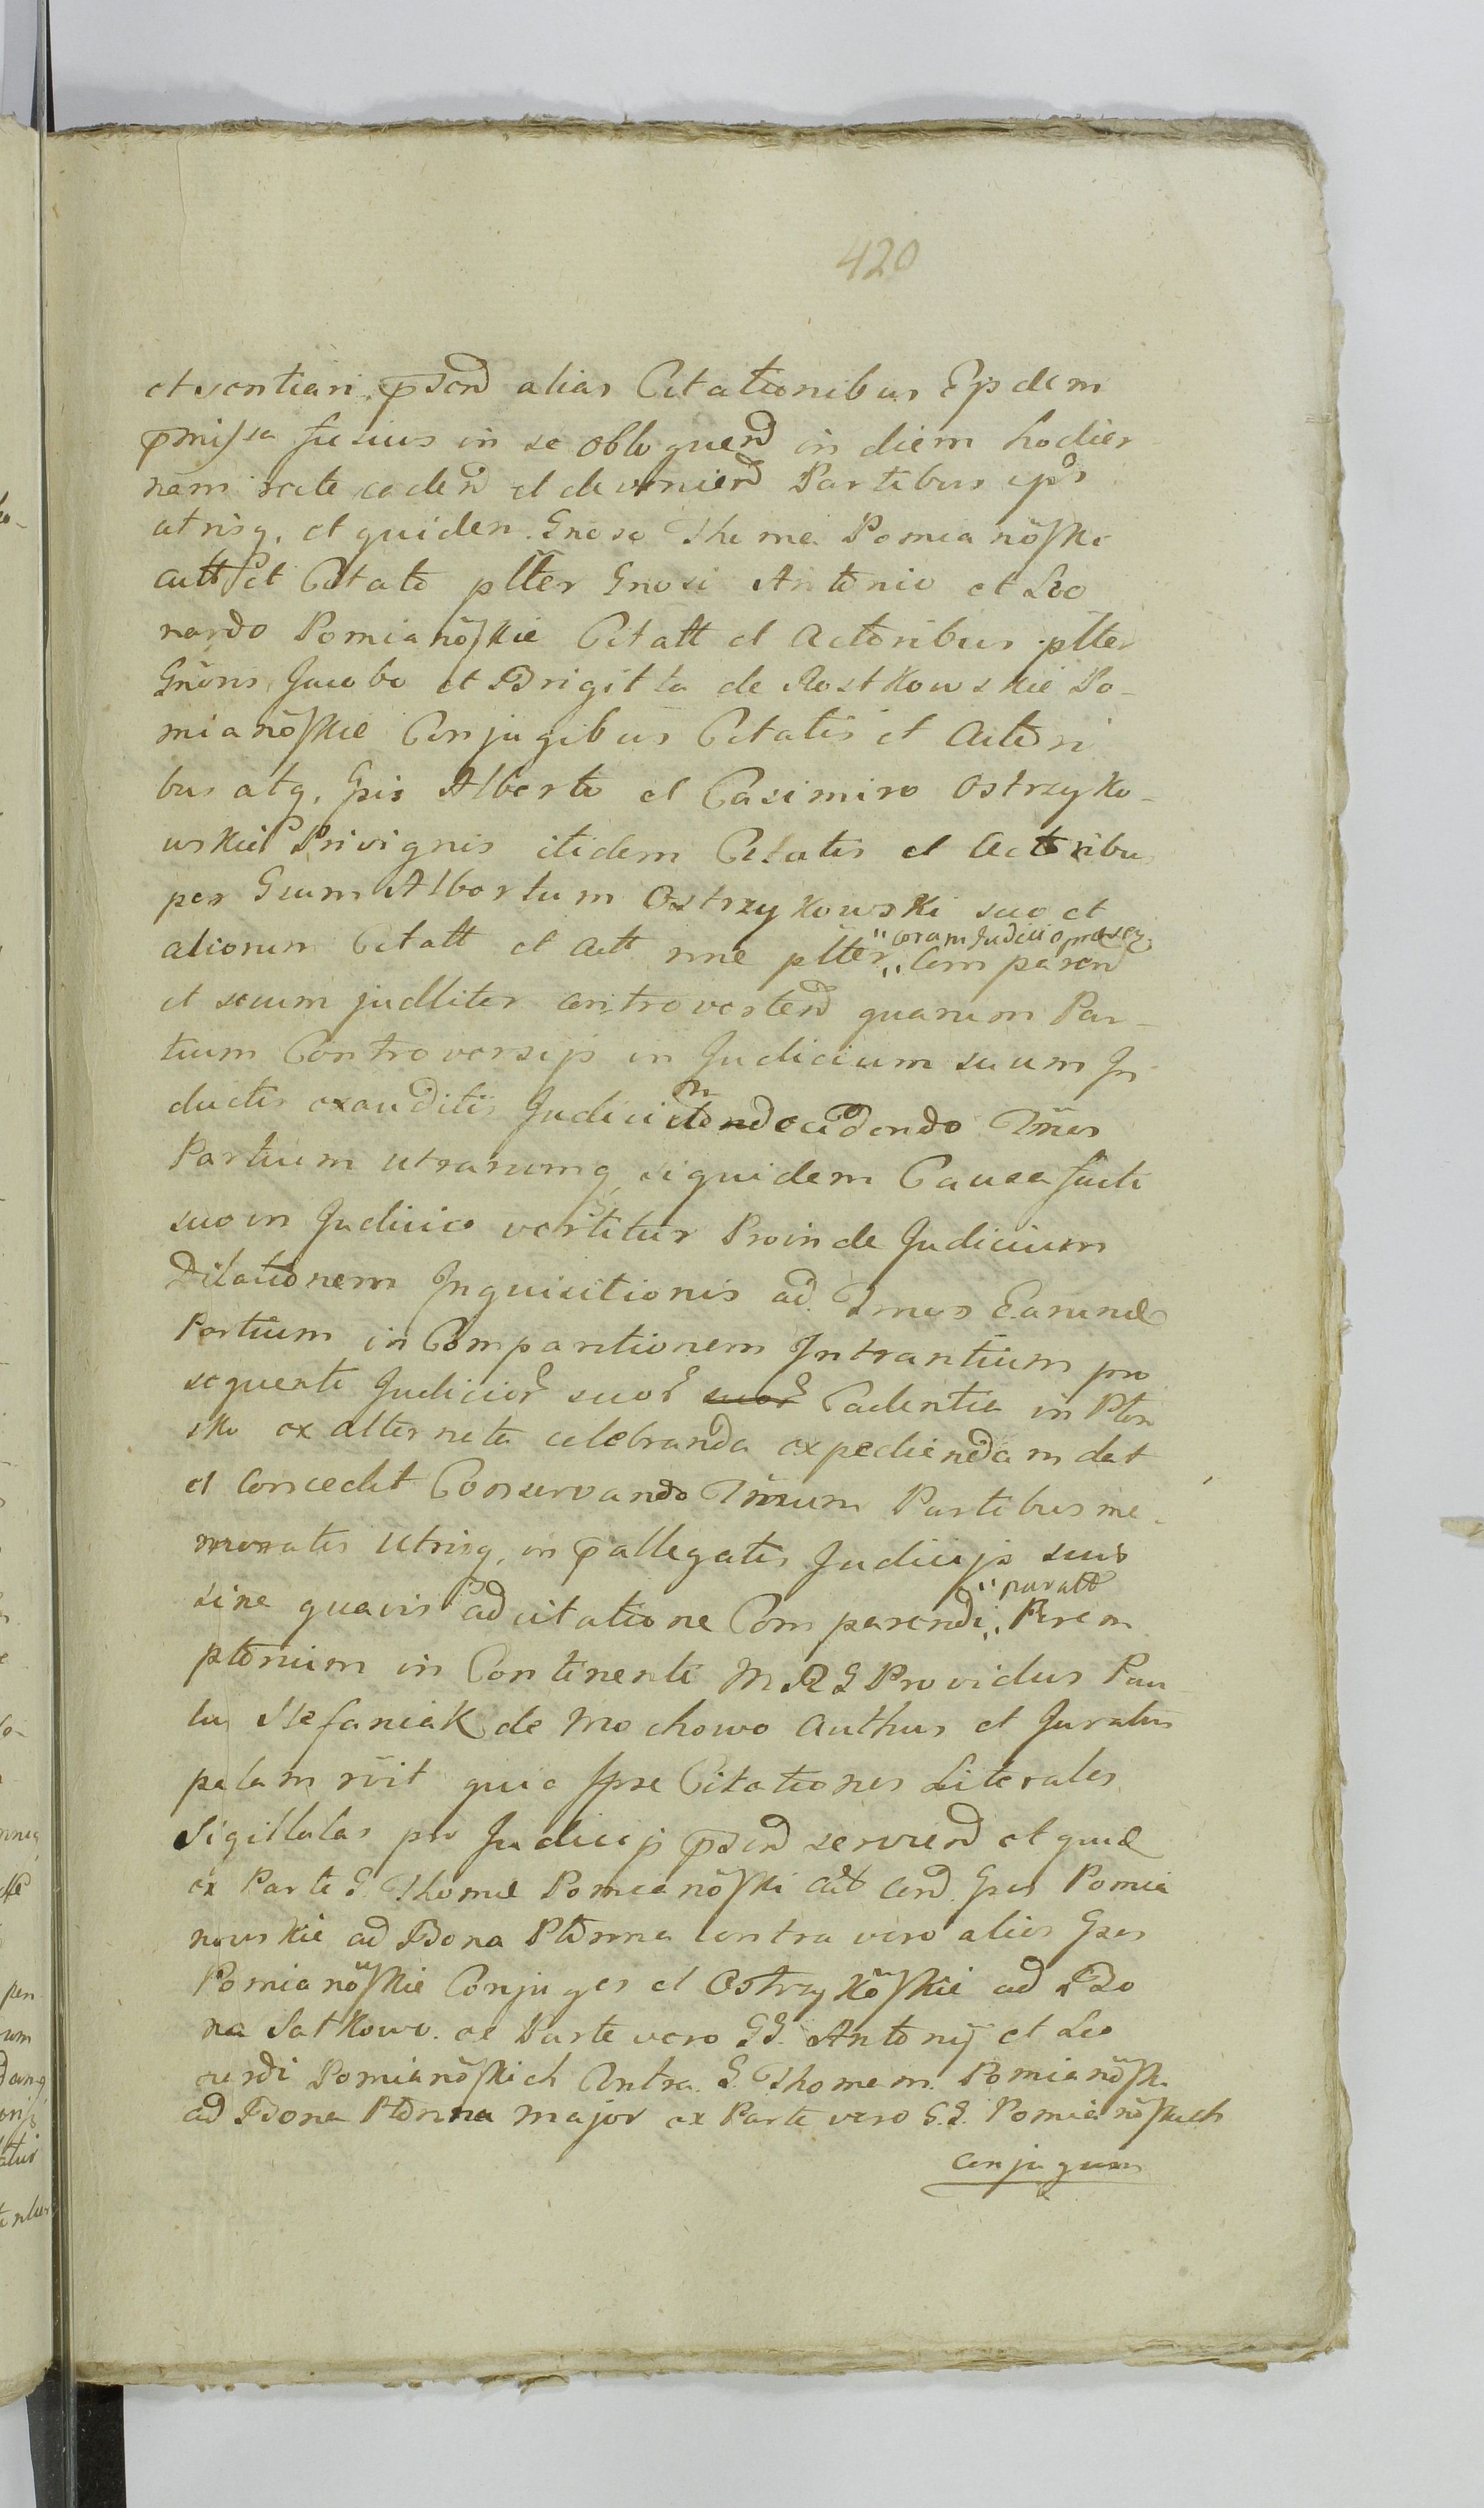 420
et sentiari p̄send alias Citationibus Ejsdem
p̄missa fusius in se obloquend in diem hodier
nam rite caden et devenierd Partibus ips
utrisq, et quidem Gnoso Thoma Pomianõski
actt et Citato pltter Gnosi Antonio et Leo
nardo Pomianõskie Citatt et Actoribus pltter
Gnõris Jacobo et Brigitta de Rostkowskie Po-
mianõskie Conjugibus Citatis et Actori
bus atq, Gsis Alberto et Casimiro Ostrzyko-
wskie Privignis itidem Citatis et Actoribus
per Gsum Albertum Ostrzykowski suo et
aliorum Citatt et Actt nne pltter „ Comparend
" coram Judicio præsenz
et secum judlliter controvertend quarum Par-
tium Controversijs in Judicium suum In
ductis exauditis Judici decidendo Tñes
m
Partium utrarumq, siquidem Causa facti
suo in Judicio vertitur Proinde Judicium
Dilationem Inquisitionis ad Tmos Earund
Partium in Comparitionem Intrantium pro
sequenti Judicior suor suor Cadentia in Plon
sko ex alternata celebranda expediendam dat
et Concedit Conservando Tñnum Partibus me-
moratis Utrisq, in p̄allegatis Judicijs suis
sine quavis adcitatione Comparendi „ Perem
" paratt
ptorium in Continenti M R G Providus Pau
lus Stefaniak de Mochowo Authus et Juratus
palam rñit quia Ipse Citationes Literales
Sigillatas pro Judicijs p̄send serviend et quid
ex Parte G. Thomæ Pomianõski Act Cond. Gsos Pomia
nowskie ad Bona Ptõrna contra vero alios Gsos
Pomianõskie Conjuges et Ostrzykõskie ad Bo
na Satkowo. ae Parte vero GG. Antonij et Leo
nardi Pomianõskich Contra. G. Thomam Pomianõsk.
ad Bona Ptõrna major ex Parte vero G.G. Pomianõskich
Conjugum